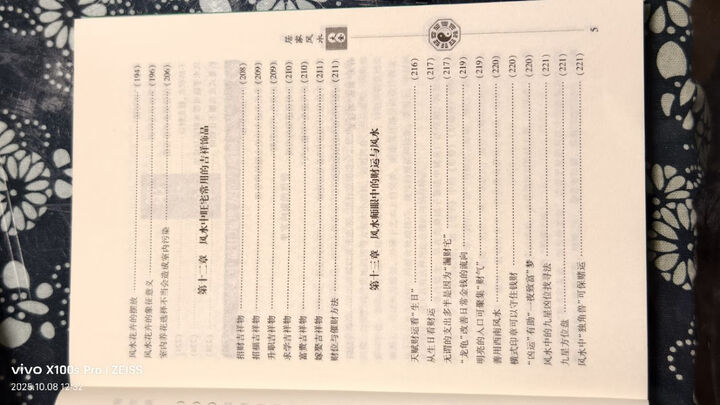 居家风水
风水花卉的摆放……(194)
风水花卉的象征意义……(196)
室内养花选择不当会造成室内污染……(206)
第十二章 风水中旺宅常用的吉祥饰品
招财吉祥物……(208)
招桃吉祥物……(209)
升职吉祥物……(209)
求学吉祥物……(210)
富贵吉祥物……(210)
嫁娶吉祥物……(211)
财位与催财方法……(211)
第十三章 风水师眼中的财运与风水
天赋财运看“生日”……(216)
从生日看财运……(217)
无谓的支出多半是因为“漏财宅”……(217)
“龙龟”改善日常金钱的流向……(219)
明亮的入口可聚集“财气”……(219)
善用西南风水……(220)
横式印章可以守住钱财……(220)
“凶运”有助“一夜致富”梦……(220)
风水中的九星凶位找寻法……(221)
九星方位盘……(221)
风水中“独角兽”可保赌运……(221)
5
vivo X100s Pro | ZEISS
2025.10.08 12:32